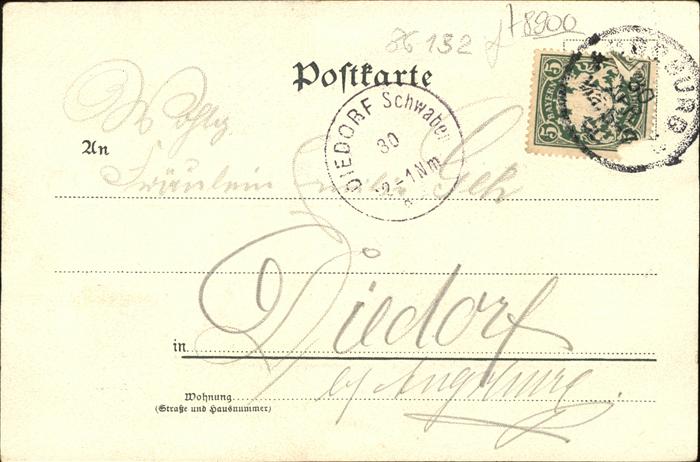 86132 78900
Postkarte
DIEDORF Schwaben
30
12-1 Nm
5 BAYERN 5
An
Wohlg
Fräulein Emilie
Diedorf
in
by Augsburg.
Wohnung
(Straße und Hausnummer)